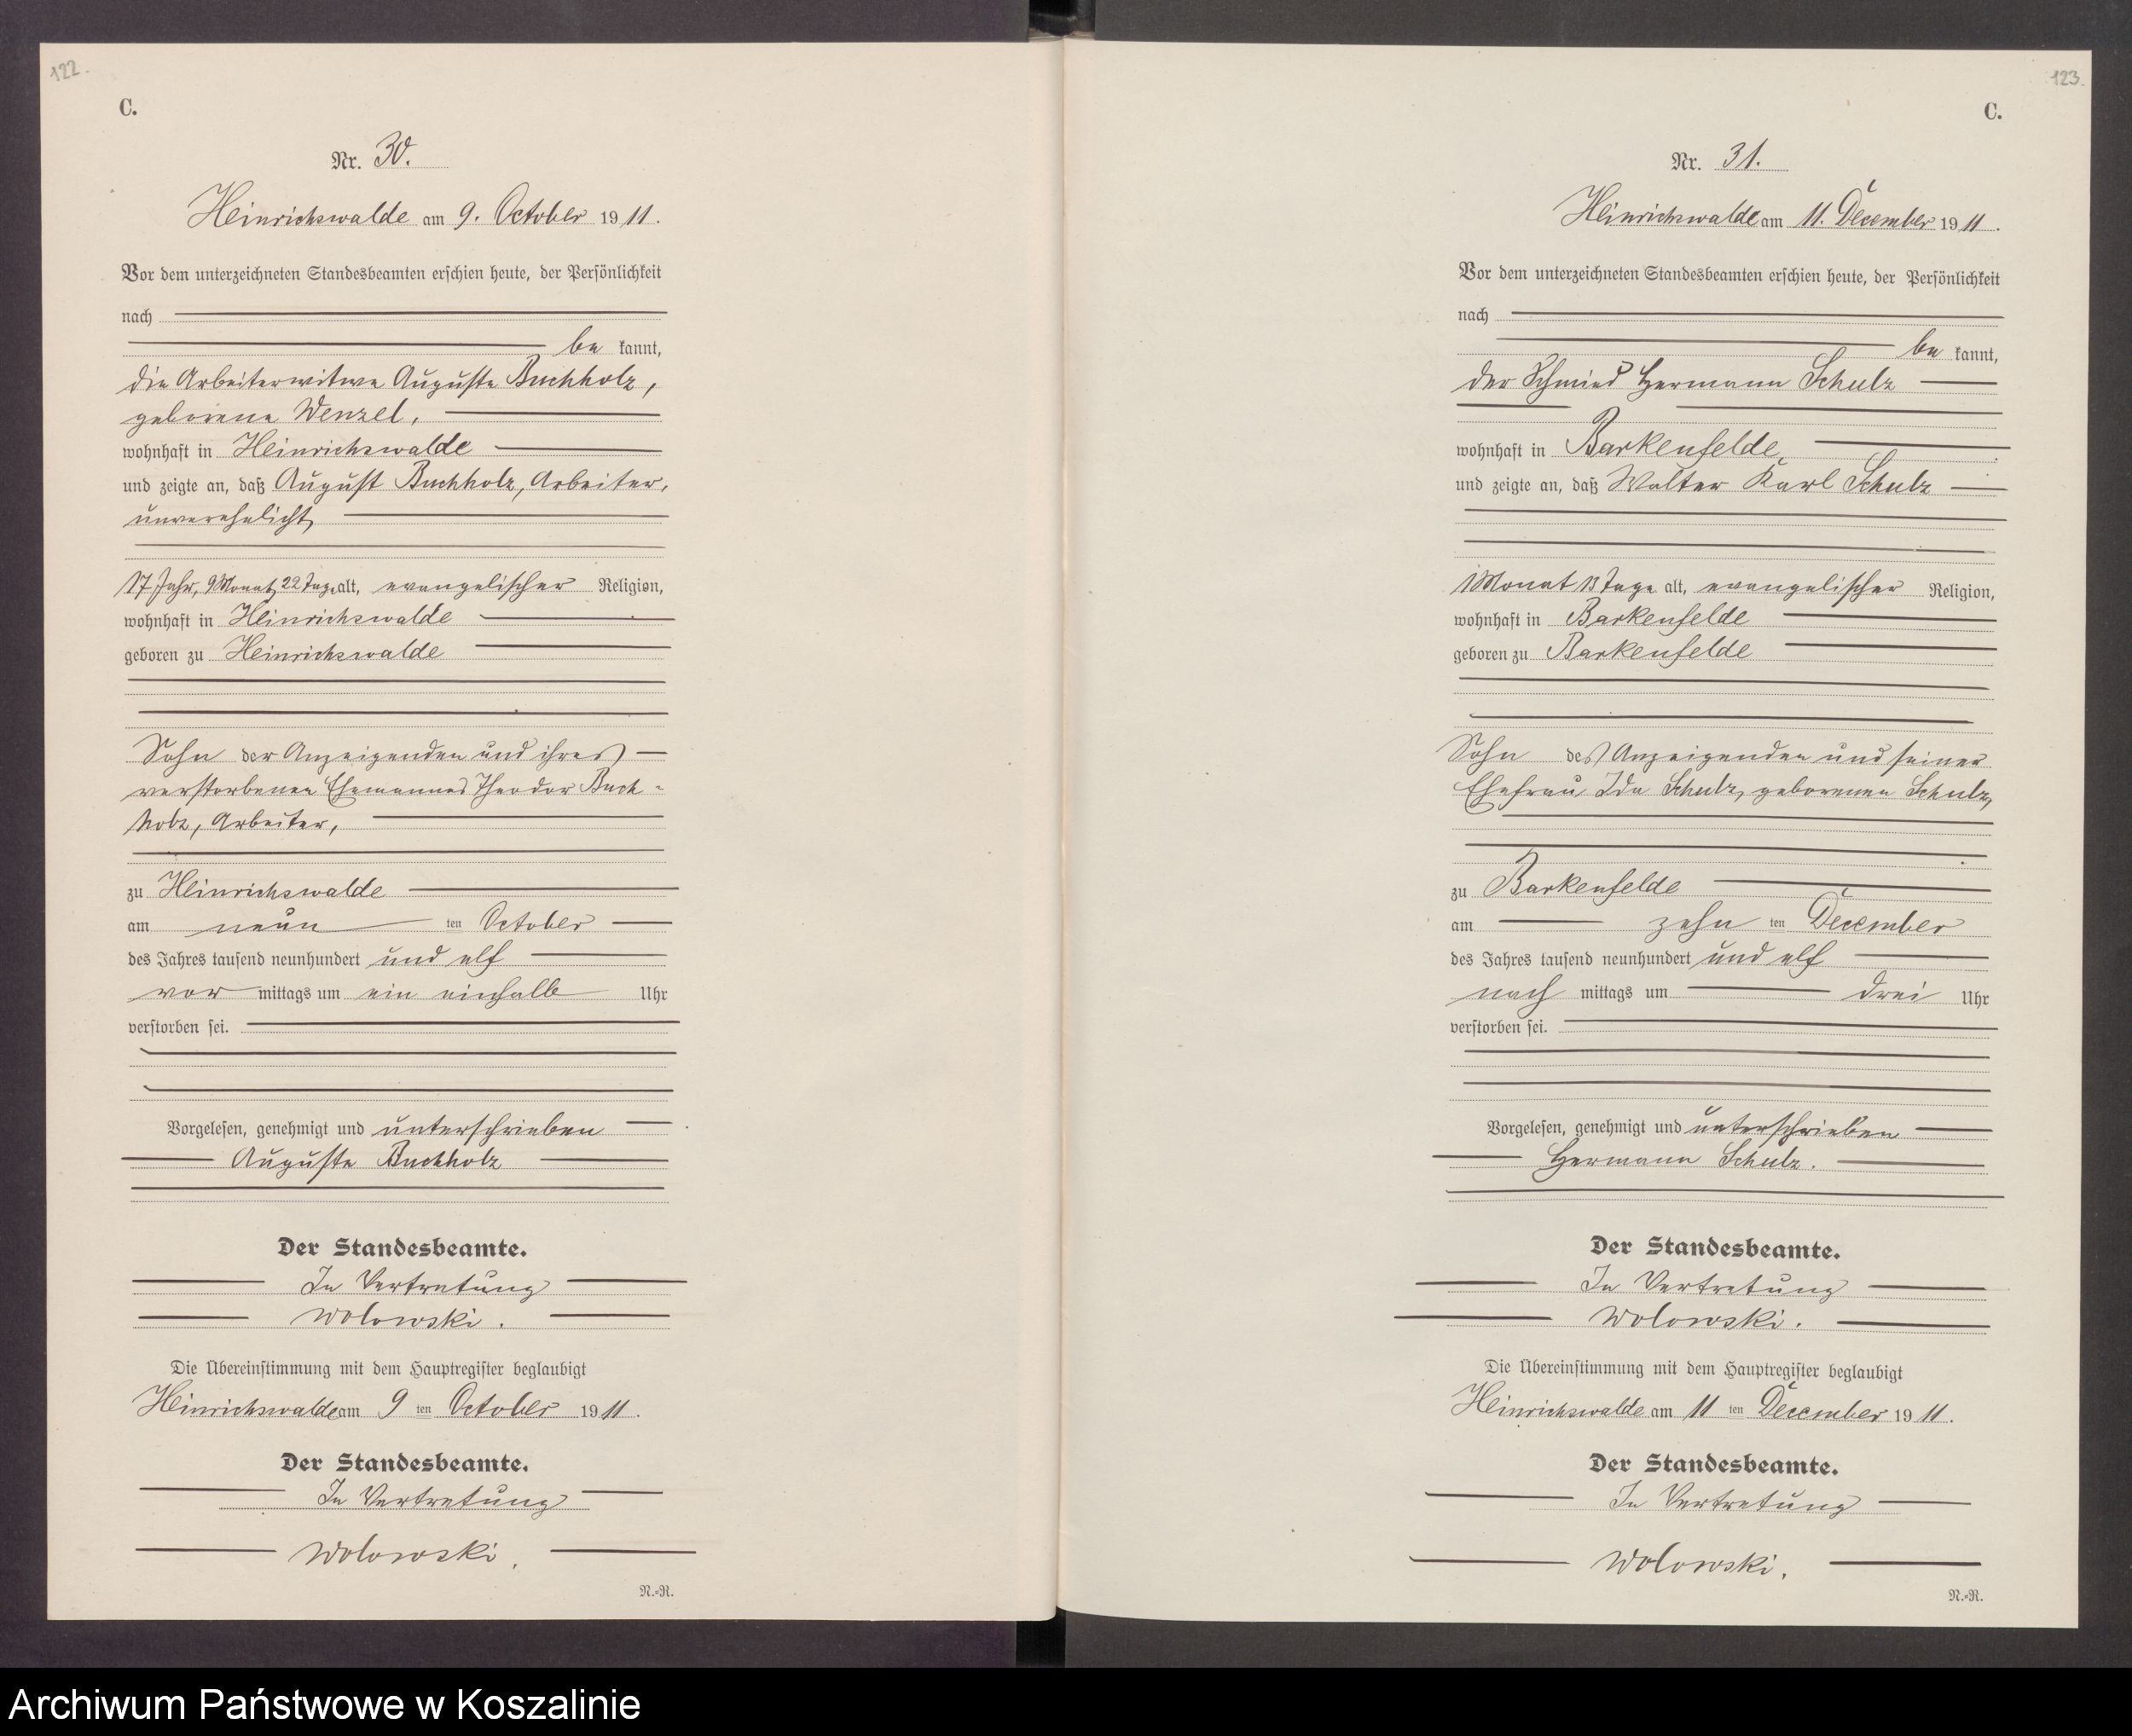 122.
C.
Nr. 30.
Heinrichswalde am 9. October 1911.
Vor dem unterzeichneten Standesbeamten erschien heute, der Persönlichkeit
nach
be kannt,
die Arbeiterwitwe Auguste Buchholz,
geborene Wenzel,
wohnhaft in Heinrichswalde
und zeigte an, daß August Buchholz, Arbeiter,
unverehelicht,
17 Jahr, 9 Monat, 22 Tage alt, evangelischer Religion,
wohnhaft in Heinrichswalde
geboren zu Heinrichswalde
Sohn der Anzeigenden und ihres
verstorbenen Ehemannes Theodor Buch-
holz, Arbeiter,
zu Heinrichswalde
am neun ten October
des Jahres tausend neunhundert und elf
vor mittags um ein einhalb Uhr
verstorben sei.
Vorgelesen, genehmigt und unterschrieben
Auguste Buchholz
Der Standesbeamte.
In Vertretung
Wolowski.
Die Übereinstimmung mit dem Hauptregister beglaubigt
Heinrichswalde am 9 ten October 1911.
Der Standesbeamte.
In Vertretung
Wolowski.
N.-R.
123.
C.
Nr. 31.
Heinrichswalde am 11. December 1911.
Vor dem unterzeichneten Standesbeamten erschien heute, der Persönlichkeit
nach
be kannt,
der Schmied Hermann Schulz
wohnhaft in Barkenfelde,
und zeigte an, daß Walter Karl Schulz
1 Monat 13 Tage alt, evangelischer Religion,
wohnhaft in Barkenfelde
geboren zu Barkenfelde
Sohn des Anzeigenden und seiner
Ehefrau Ida Schulz, geborenen Schulz,
zu Barkenfelde
am zehn ten December
des Jahres tausend neunhundert und elf
nach mittags um drei Uhr
verstorben sei.
Vorgelesen, genehmigt und unterschrieben
Hermann Schulz.
Der Standesbeamte.
In Vertretung
Wolowski.
Die Übereinstimmung mit dem Hauptregister beglaubigt
Heinrichswalde am 11 ten December 1911.
Der Standesbeamte.
In Vertretung
Wolowski.
N.-R.
Archiwum Państwowe w Koszalinie